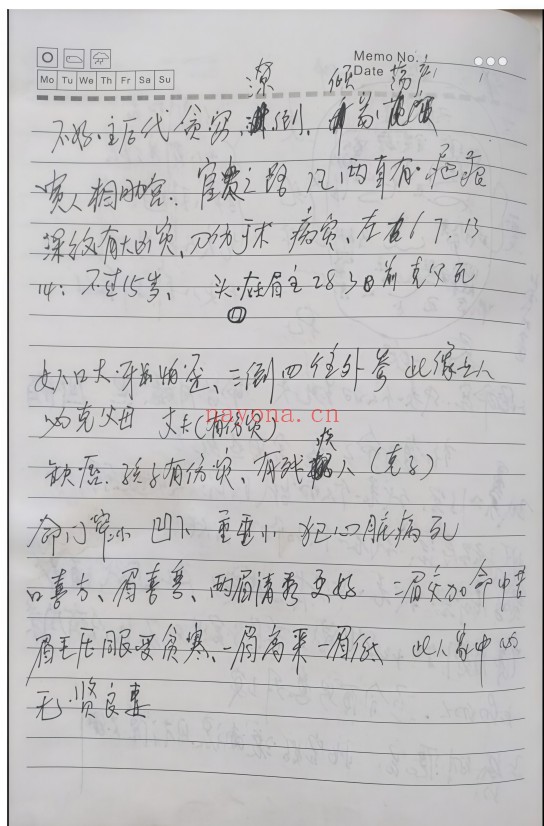 Memo No.
Date
Mo Tu We Th Fr Sa Su
潦 倾 荡产
不好主后代贫穷、倒、
贵人相助宫: 官贵之路 有疤痕
深纹有大凶灾、刀伤手术 病灾、左右 6 7. 13
14: 不过15岁、 头 在眉主28 30前克父死
女人口大牙齿怕歪、三倒四往外 此像女人
必克父母 丈夫(有伤灾)
缺 疤. 孩子有伤灾、有残疾人(克子)
命门窄小 凹下 耳垂小 犯心脏病死
口喜方、眉喜弯、两眉清秀更好 二眉交加命中苦
眉毛压眼受贫寒、一眉高来一眉低 此人家中必
无贤良妻
nayona.cn